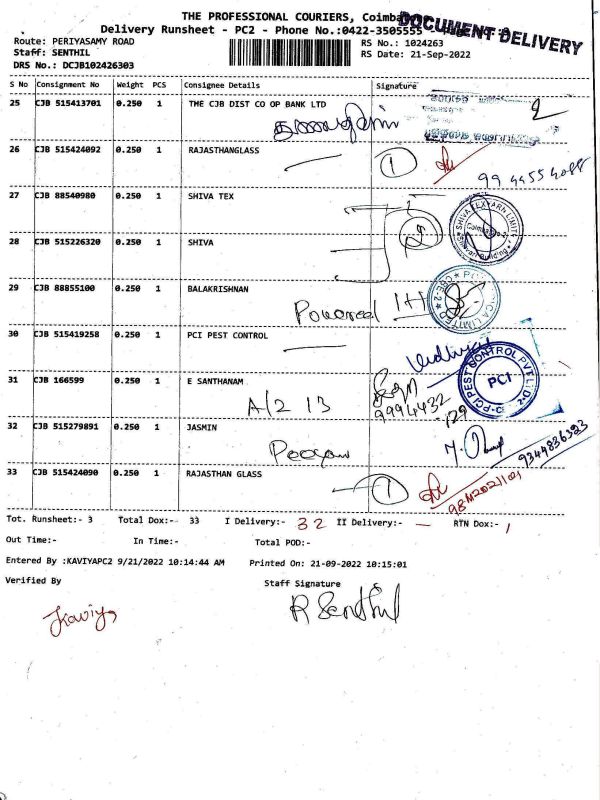 THE PROFESSIONAL COURIERS, Coimb
DOCUMENT DELIVERY
Delivery Runsheet - PC2 - Phone No.:0422-3505555
Route: PERIYASAMY ROAD
RS No.: 1024263
Staff: SENTHIL
RS Date: 21-Sep-2022
DRS No.: DCJB102426303
S No Consignment No Weight PCS Consignee Details Signature
25 CJB 515413701 0.250 1 THE CJB DIST CO OP BANK LTD
2
26 CJB 515424092 0.250 1 RAJASTHANGLASS
1
27 CJB 88540980 0.250 1 SHIVA TEX
SHIVA TEXYARN LIMITED
2
28 CJB 515226320 0.250 1 SHIVA
29 CJB 88855100 0.250 1 BALAKRISHNAN
30 CJB 515419258 0.250 1 PCI PEST CONTROL
PCI PEST CONTROL PVT LTD
PCI
31 CJB 166599 0.250 1 E SANTHANAM
A/2 13
9994432
32 CJB 515279891 0.250 1 JASMIN
9344836323
33 CJB 515424090 0.250 1 RAJASTHAN GLASS
1
Tot. Runsheet:- 3 Total Dox:- 33 I Delivery:- 32 II Delivery:- — RTN Dox:- 1
Out Time:- In Time:- Total POD:-
Entered By :KAVIYAPC2 9/21/2022 10:14:44 AM Printed On: 21-09-2022 10:15:01
Verified By Staff Signature
Kaviya
R Senthil